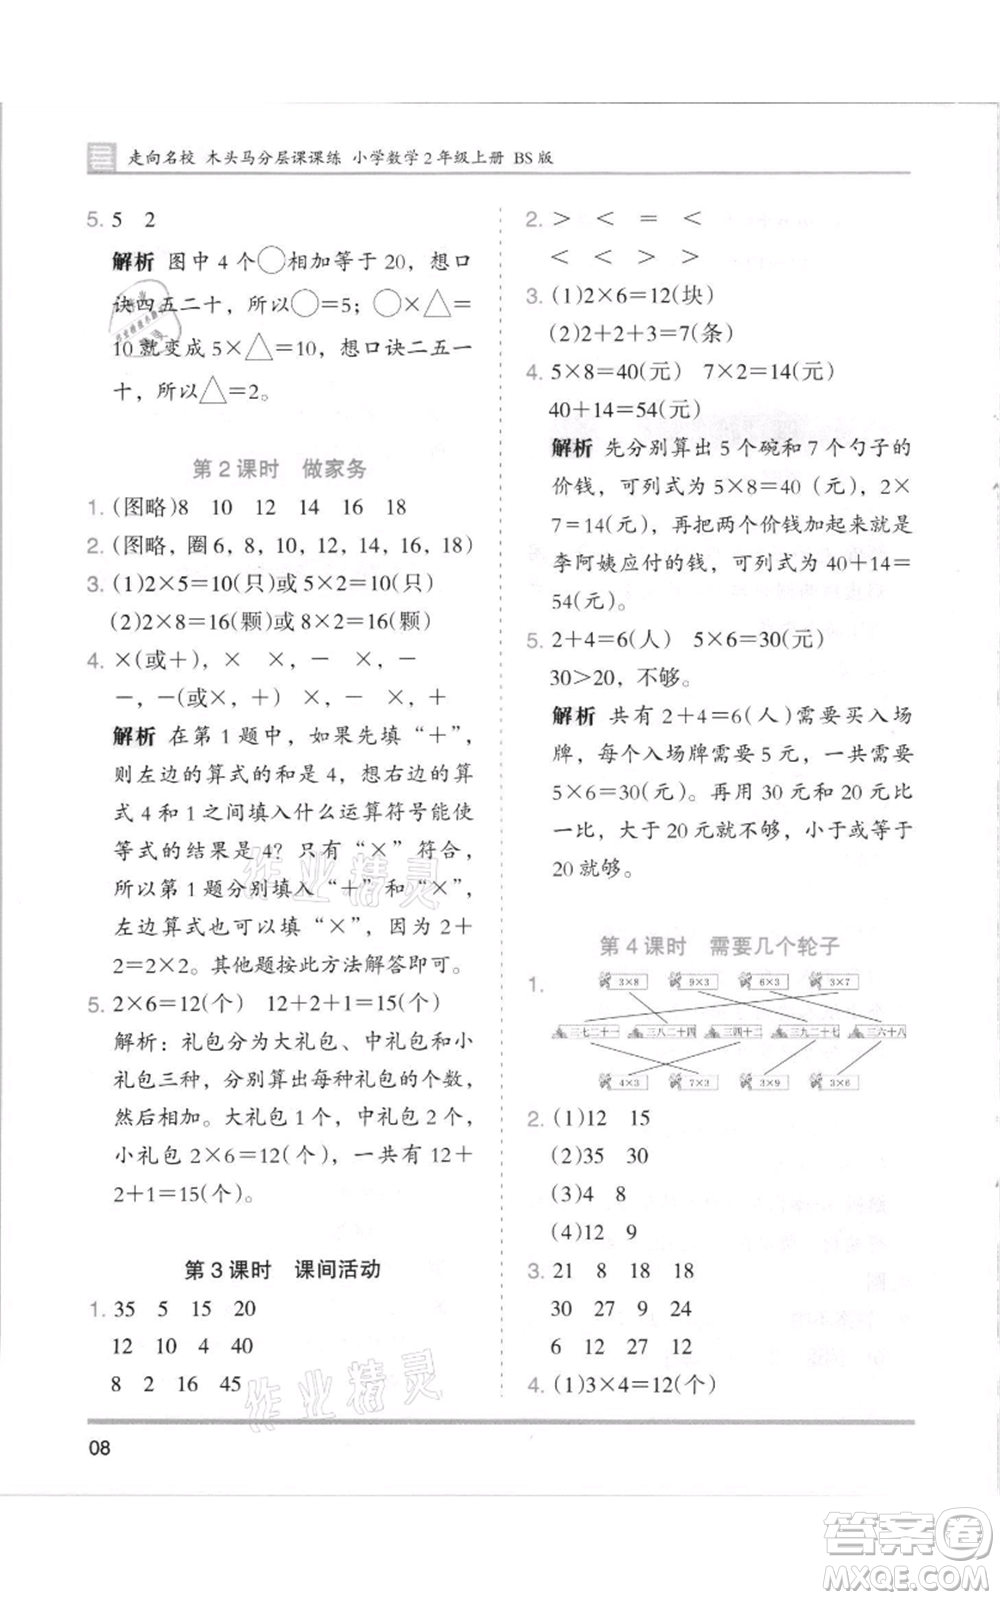 走向名校 木头马分层课课练 小学数学2年级上册 BS版
5. 5 2
解析 图中4个○相加等于20,想口
诀四五二十,所以○=5;○×△=
10就变成5×△=10,想口诀二五一
十,所以△=2。
第2课时 做家务
1. (图略)8 10 12 14 16 18
2. (图略,圈6,8,10,12,14,16,18)
3. (1)2×5=10(只)或5×2=10(只)
(2)2×8=16(颗)或8×2=16(颗)
4. ×(或+),× ×,- ×,-
-,-(或×,+) ×,- ×,+
解析 在第1题中,如果先填“+”,
则左边的算式的和是4,想右边的算
式4和1之间填入什么运算符号能使
等式的结果是4?只有“×”符合,
所以第1题分别填入“+”和“×”,
左边算式也可以填“×”,因为2+
2=2×2。其他题按此方法解答即可。
5. 2×6=12(个) 12+2+1=15(个)
解析:礼包分大礼包、中礼包和小
礼包三种,分别算出每种礼包的个数,
然后相加。大礼包1个,中礼包2个,
小礼包2×6=12(个),一共有12+
2+1=15(个)。
第3课时 课间活动
1. 35 5 15 20
12 10 4 40
8 2 16 45
2. > < = <
< < > >
3. (1)2×6=12(块)
(2)2+2+3=7(条)
4. 5×8=40(元) 7×2=14(元)
40+14=54(元)
解析 先分别算出5个碗和7个勺子的
价钱,可列式为5×8=40(元),2×
7=14(元),再把两个价钱加起来就是
李阿姨应付的钱,可列式为40+14=
54(元)。
5. 2+4=6(人) 5×6=30(元)
30>20,不够。
解析 共有2+4=6(人)需要买入场
牌,每个入场牌需要5元,一共需要
5×6=30(元)。再用30元和20元比
一比,大于20元就不够,小于或等于
20就够。
第4课时 需要几个轮子
1. 3×8 9×3 6×3 3×7
三七二十一 三八二十四 三四十二 三九二十七 三六十八
4×3 7×3 3×9 3×6
2. (1)12 15
(2)35 30
(3)4 8
(4)12 9
3. 21 8 18 18
30 27 9 24
6 12 27 12
4. (1)3×4=12(个)
08
作业精灵
作业精灵
答案圈
MXQE.COM